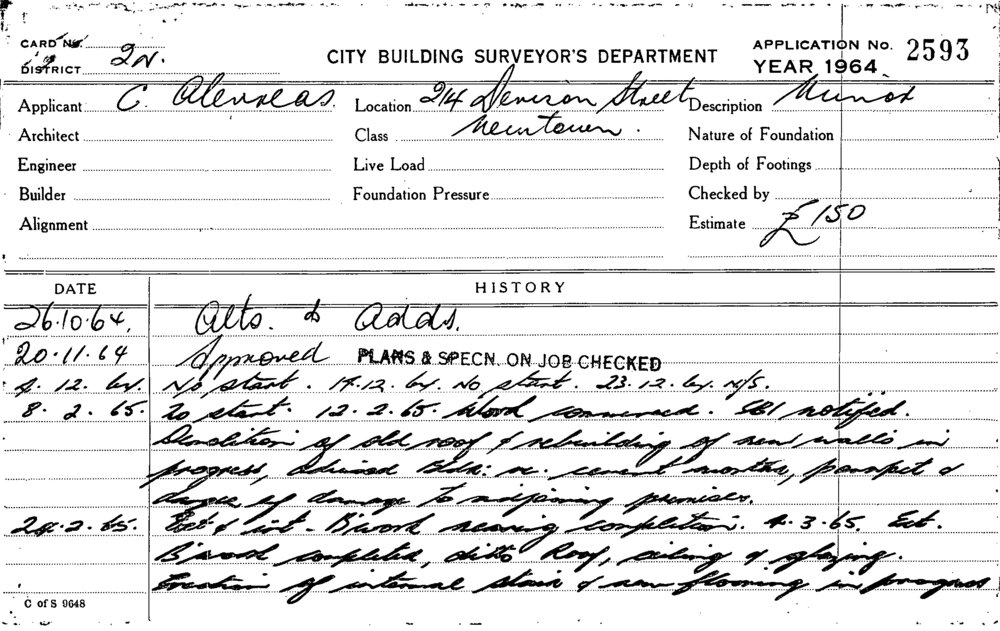 CARD No.
DISTRICT 2N.
CITY BUILDING SURVEYOR'S DEPARTMENT
APPLICATION No. 2593
YEAR 1964
Applicant C. Location 214 Denison Street Description Minor
Architect Class Newtown. Nature of Foundation
Engineer Live Load Depth of Footings
Builder Foundation Pressure Checked by
Alignment Estimate £150
DATE HISTORY
26.10.64. Alts. & Adds.
20.11.64 Approved PLANS & SPECN. ON JOB CHECKED
4.12.64. No start. 14.12.64. No start. 23.12.64. N/S.
8.2.65. No start. 12.2.65. Work commenced. SBI notified.
Demolition of old roof & rebuilding of new walls in
progress, advised Bldr: re. cement mortar, parapet &
danger of damage to adjoining premises.
24.2.65. Ext & int - B'work nearing completion. 4.3.65. Ext.
B'work completed, ditto Roof, ceiling & glazing.
Erection of internal stair & new flooring in progress
C of S 9648